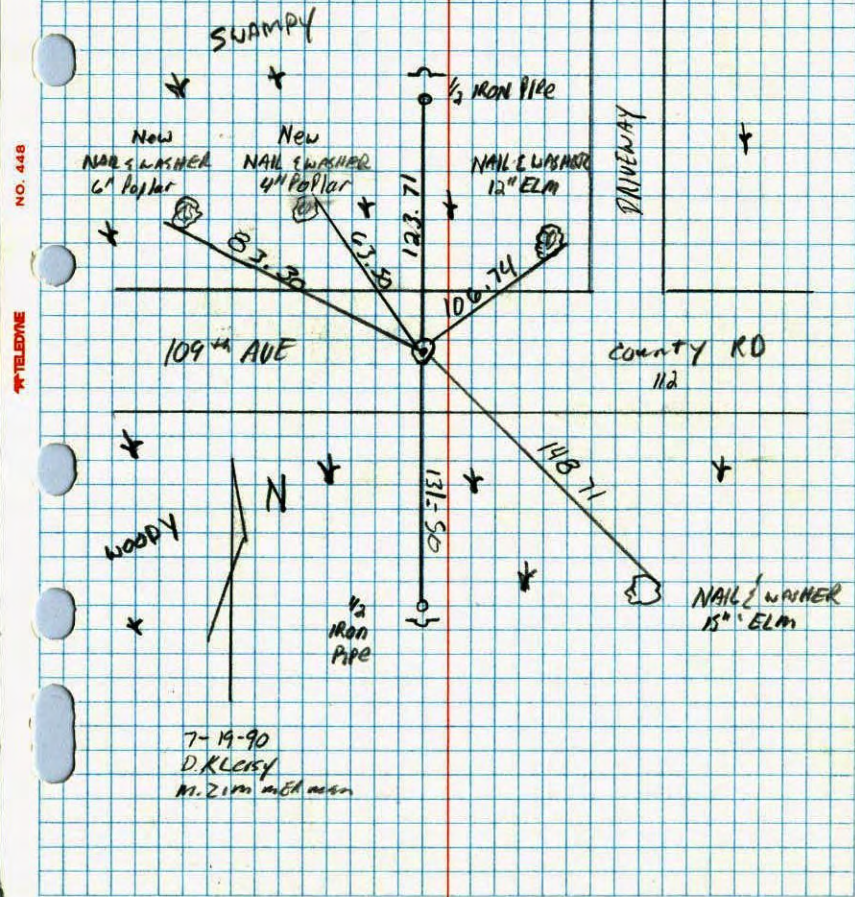 SWAMPY
1/2 IRON PIPE
New
NAIL & WASHER
6" Poplar
New
NAIL & WASHER
4" PoPlar
NAIL & WASHER
12" ELM
DRIVEWAY
NO. 448
TELEDYNE
83.30
63.50
123.71
106.74
109th AVE
County RD
112
148.71
131.50
WOODY
N
1/2
IRON
PIPE
NAIL & WASHER
15" ELM
7-19-90
M. Zimmerman